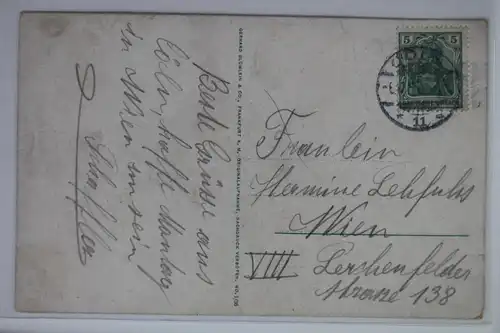 Beste Grüsse aus
Cöln, hoffe Montag
in Wien zu sein
GERHARD BLÜMLEIN & CO., FRANKFURT A. M.
5 5
11
Fräulein
Hermine Lehfuhs
Wien
VIII Lerchenfelder
strasse 138